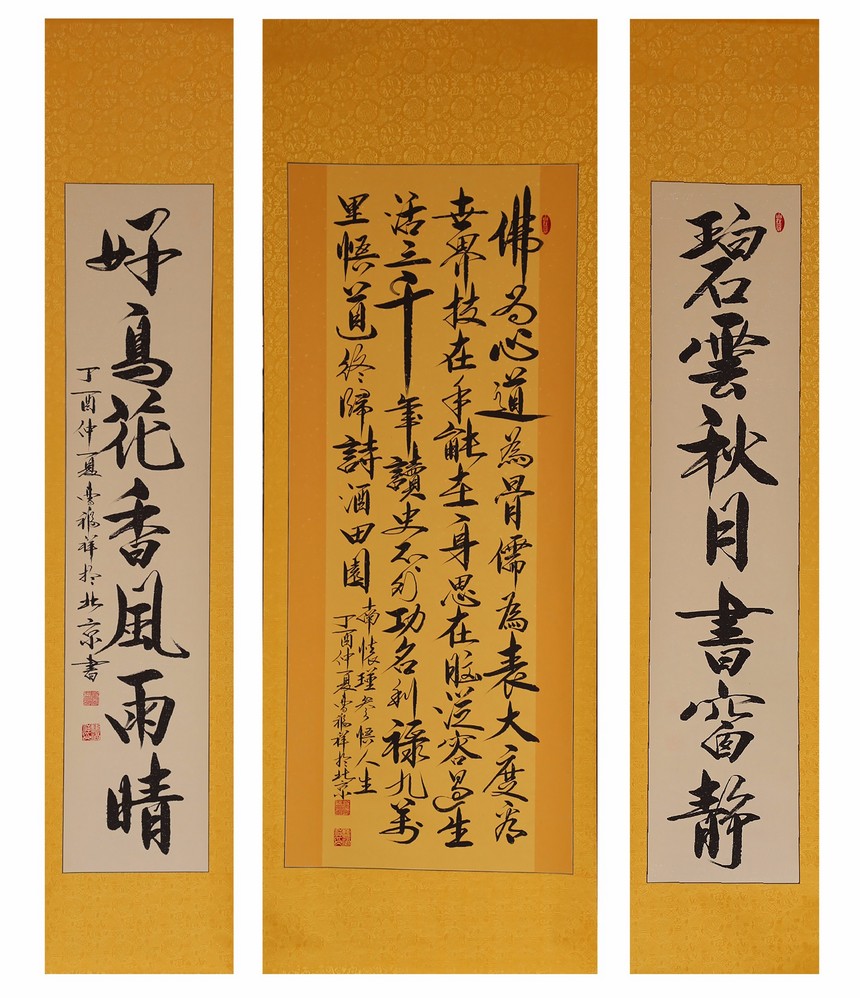 碧雲秋月書窗静
佛為心道為骨儒為表大度看
世界技在手能在身思在腦從容過生
活三千年讀史不外功名利禄九萬
里悟道終歸詩酒田園
南懷瑾參悟人生
丁酉仲夏福祥於北京
好鳥花香風雨晴
丁酉仲夏福祥於北京書